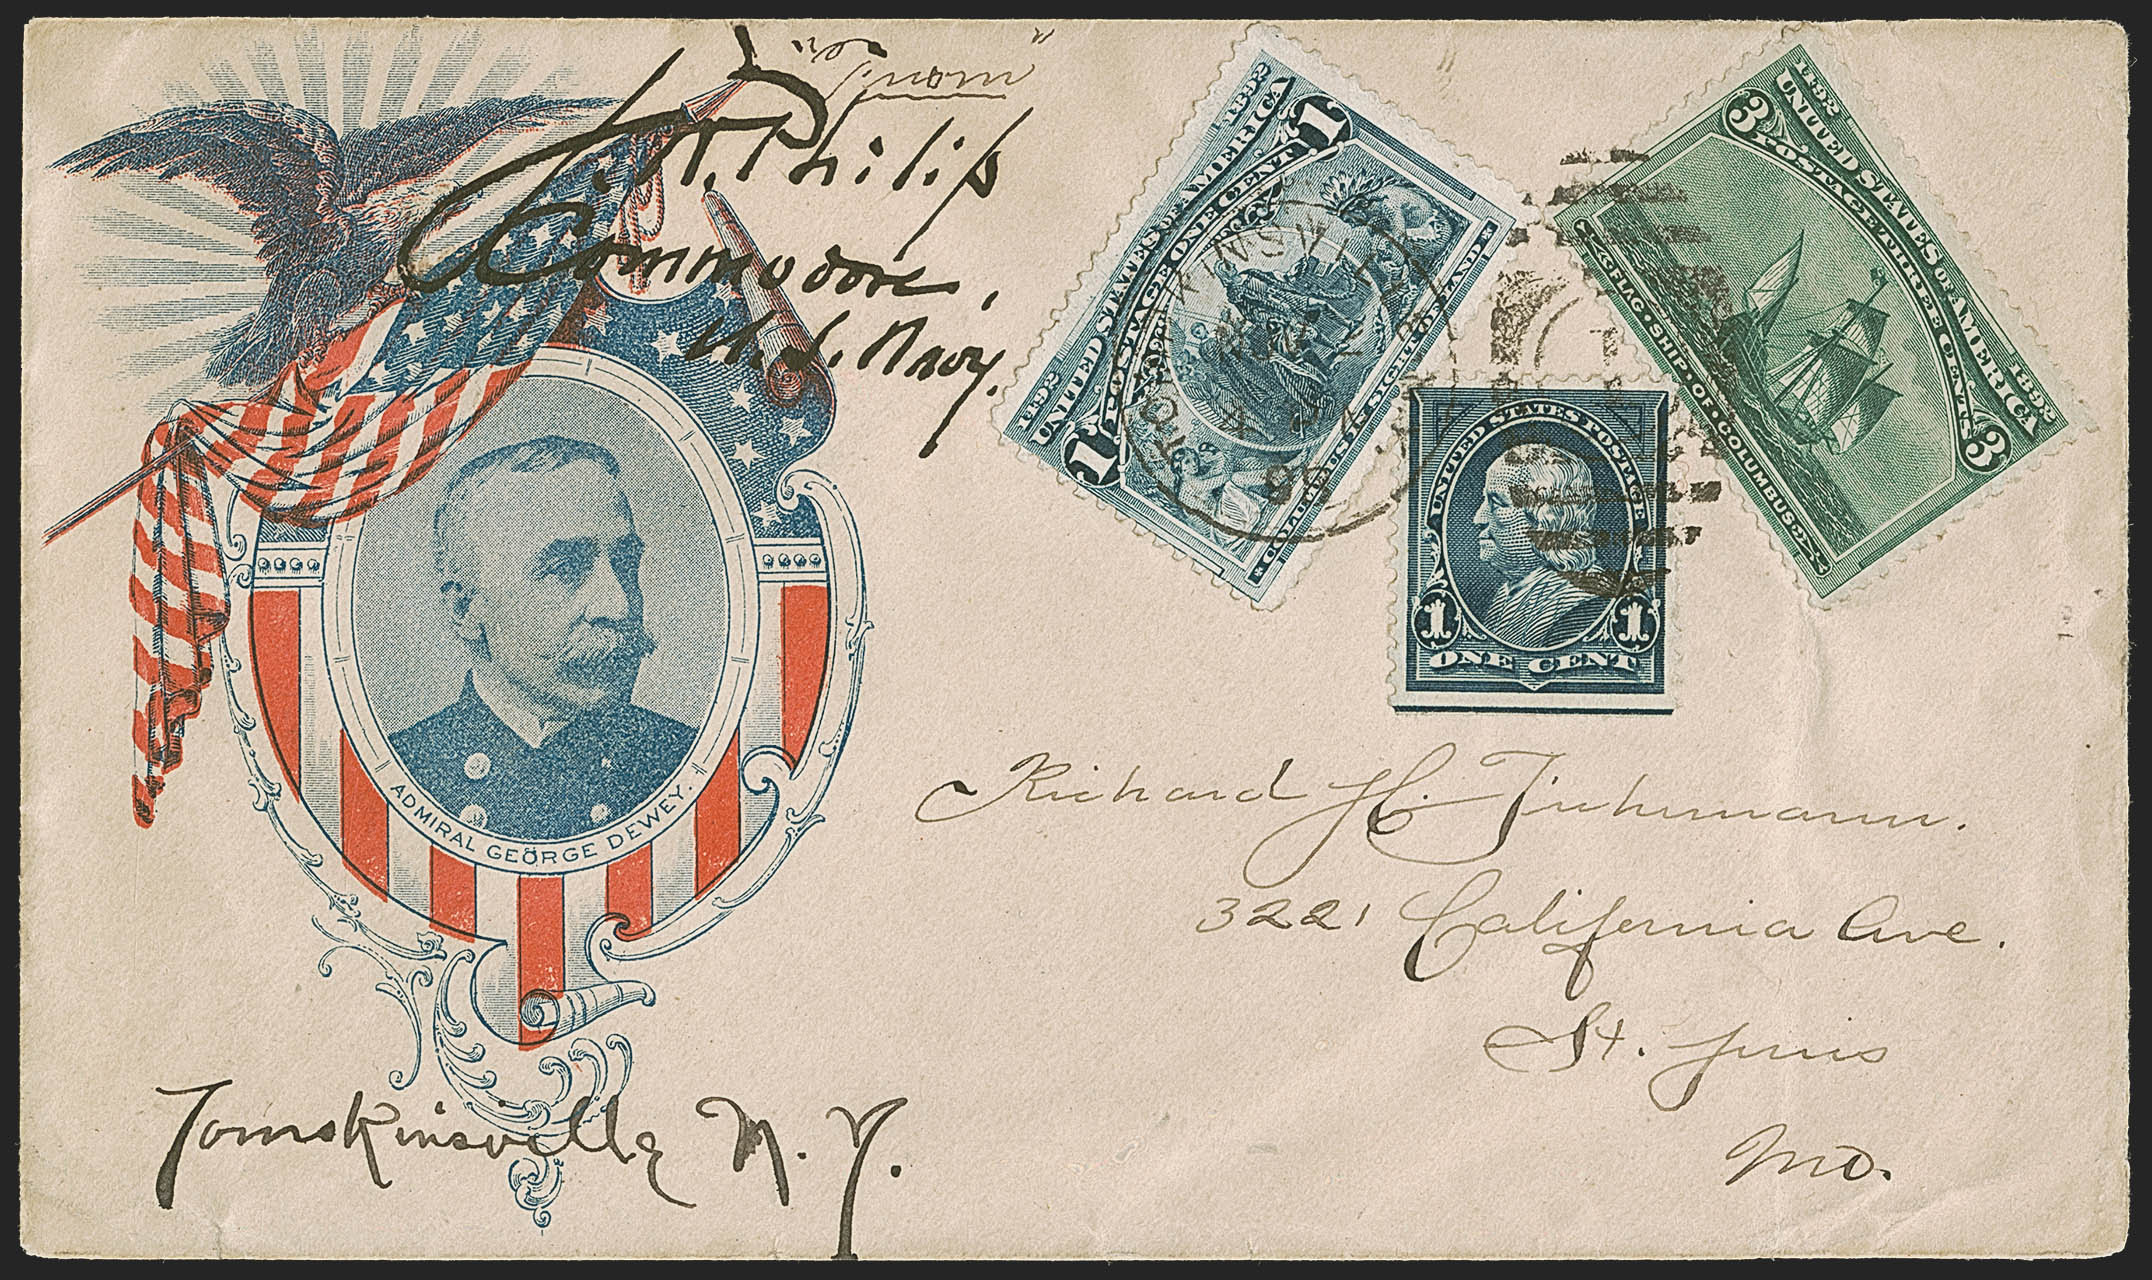 J. W. Philip
Commodore,
U. S. Navy.
ADMIRAL GEORGE DEWEY.
Tomskinsville N. Y.
1492 UNITED STATES OF AMERICA 1892
1 POSTAGE ONE CENT 1
COLUMBUS IN SIGHT OF LAND
TOMPKINSVILLE
98
UNITED STATES POSTAGE
1 1
ONE CENT
1492 UNITED STATES OF AMERICA 1892
3 POSTAGE THREE CENTS 3
FLAG SHIP OF COLUMBUS
Richard H. Tiuhumann.
3221 California Ave.
St. Louis
Mo.